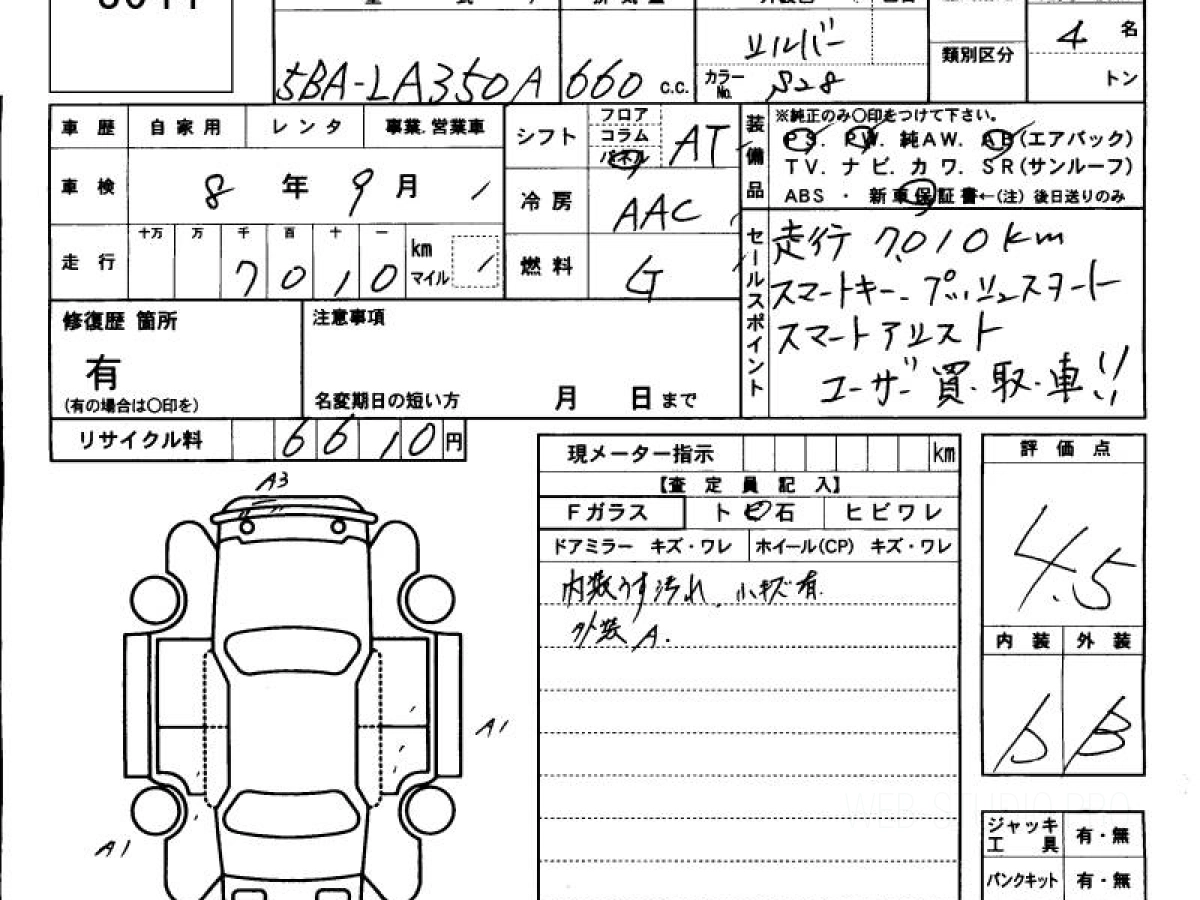 シルバー
4 名
類別区分
5BA-LA350A
660 c.c.
カラーNo. S28
トン
車歴 自家用 レンタ 事業.営業車
シフト フロア コラム パネル AT
装備品
※純正のみ〇印をつけて下さい。
PS. PW. 純AW. AB(エアバック)
TV. ナビ. カワ. SR(サンルーフ)
ABS ・ 新車保証書←(注) 後日送りのみ
車検 8 年 9 月
冷房 AAC
走行 十万 万 千 百 十 一
7 0 1 0 km マイル
燃料 G
セールスポイント
走行 7,010km
スマートキー. プッシュスタート
スマートアシスト
ユーザー買.取.車!!
修復歴 箇所
有
(有の場合は〇印を)
注意事項
名変期日の短い方 月 日まで
リサイクル料 6610円
現メーター指示 km
【査定員記入】
Fガラス トビ石 ヒビワレ
ドアミラー キズ・ワレ ホイール(CP) キズ・ワレ
内装うす汚れ. 小キズ有.
外装A.
評価点
4.5
内装 外装
B B
A3
A1
A1
ジャッキ工具 有・無
パンクキット 有・無